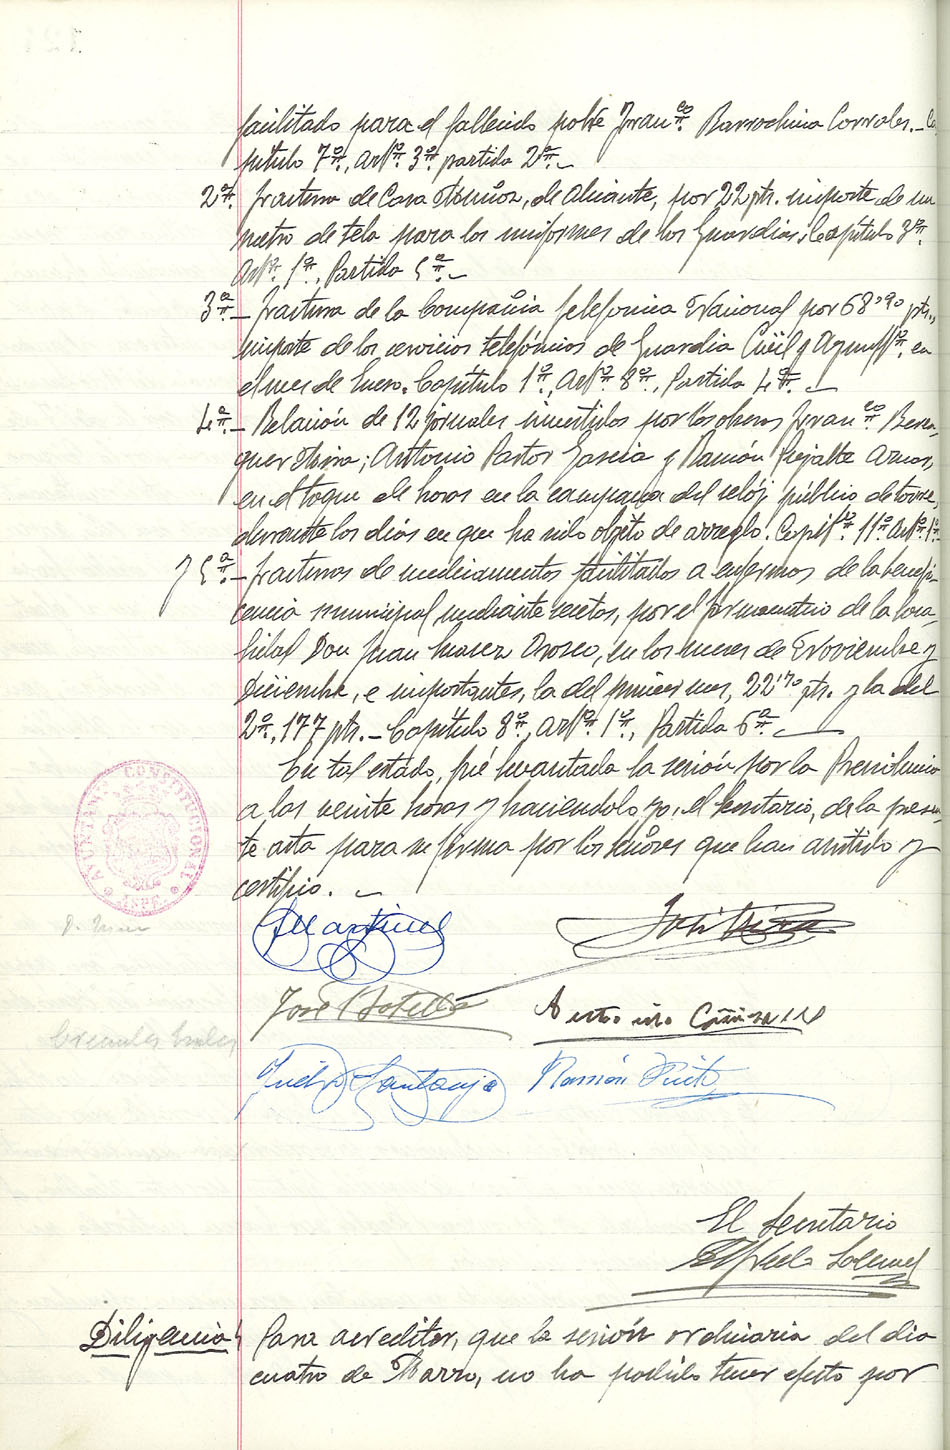 facilitado para el fallecido pobre Fran.co Barrachina Corrales.- Ca-
pitulo 7º, Artº. 3º partida 2ª.-
2ª. Factura de Casa Muñoz, de Alicante, por 22 pts. importe de un
metro de tela para los uniformes de los Guardias; Capítulo 3º.
Artº. 1º, Partida 5ª.-
3ª.- Factura de la Compañia Telefonica Nacional por 68'90 pts.,
importe de los servicios telefónicos de Guardia Civil y Ayuntº. en
el mes de Enero. Capítulo 1º, Artº 8º, Partida 4ª.-
4ª.- Relación de 12 jornales invertidos por los obreros Fran.co Beren-
guer Mira; Antonio Pastor Garcia y Ramón Aznar,
en el toque de horas en la campana del reloj público de torre,
durante los dias en que ha sido objeto de arreglo. Capitº. 11º Artº. 1º
y 5ª.- Facturas de medicamentos facilitados a enfermos de la benefi-
cencia municipal mediante recetas, por el farmaceutico de la loca-
lidad Don Juan Orozco, en los meses de Noviembre y
Diciembre, e importantes, la del primer mes, 22'70 pts. y la del
2º, 177 pts.- Capítulo 8º, Artº 1º, Partida 6ª.-
En tal estado, fué levantada la sesión por la Presidencia
a las veinte horas y haciendolo yo, el Secretario, de la presen-
te acta para su firma por los señores que han asistido y
certifico.-
AYUNTAMº CONSTITUCIONAL
ASPE
Martinez
José Botella
Antonio
Santonja Ramón
El Secretario
Alfredo
Diligencia Para acreditar, que la sesión ordinaria del dia
cuatro de Marzo, no ha podido tener efecto por